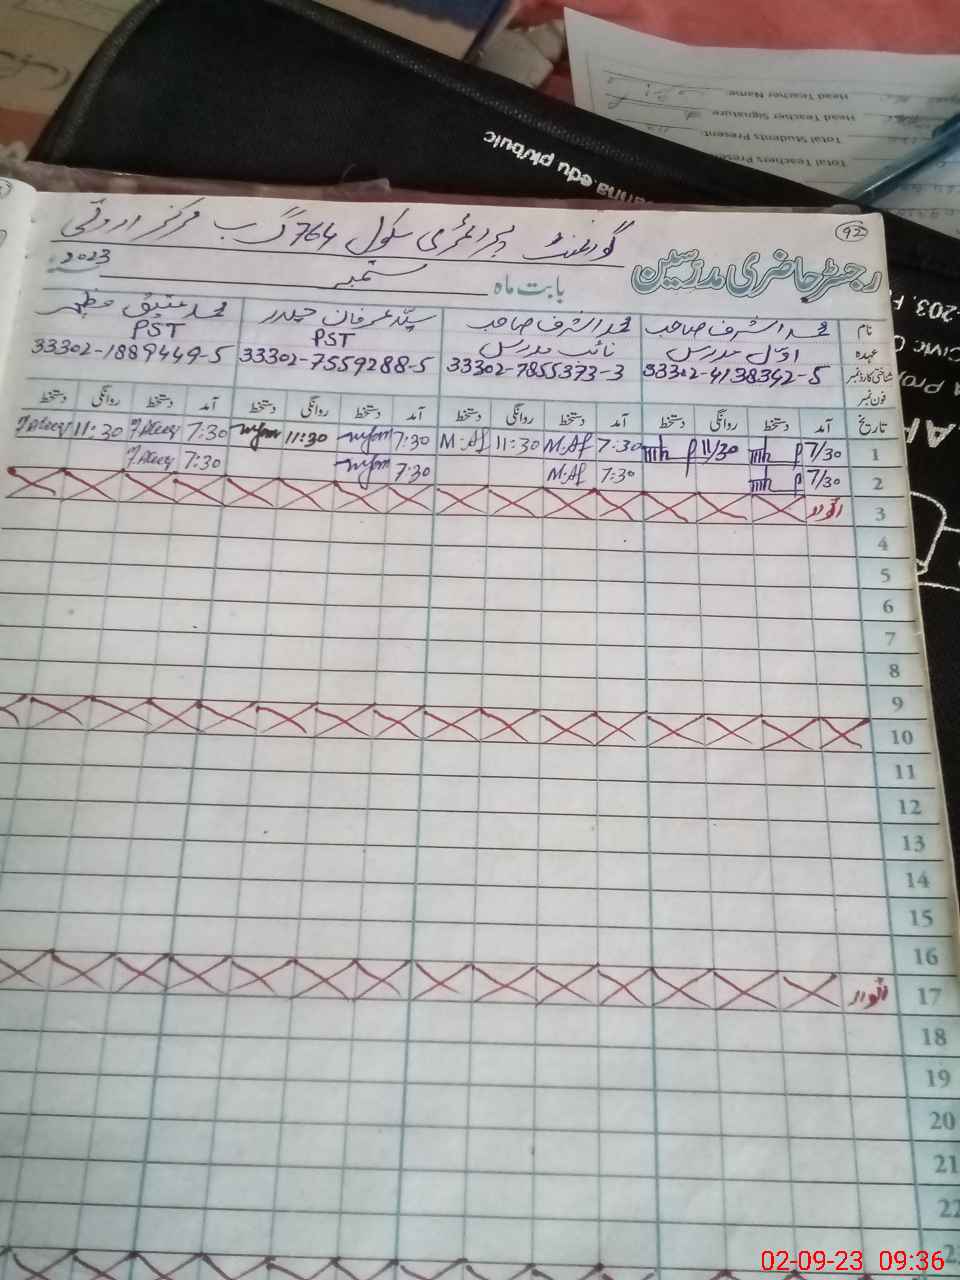 Head Teacher Name:
Head Teacher Signature
Total Students Present:
Total Teachers Present
edu.pk/bulc
92
گورنمنٹ پرائمری سکول 764 گ ب مرکز اروتی
رجسٹر حاضری مدرسین
بابت ماہ ستمبر 2023
نام محمد اشرف صاحب محمد اشرف صاحب سید عرفان حیدر محمد عتیق مظہر
عہدہ اول مدرس نائب مدرس PST PST
شناختی کارڈ نمبر 33302-4138342-5 33302-7855373-3 33302-7559288-5 33302-1889449-5
فون نمبر
تاریخ آمد دستخط روانگی دستخط آمد دستخط روانگی دستخط آمد دستخط روانگی دستخط آمد دستخط روانگی دستخط
1 7/30 11/30 7:30 M.Af 11:30 M.Af 7:30 11:30 7:30 11:30
2 7/30 7:30 M.Af 7:30 7:30
3 اتوار
4
5
6
7
8
9
10
11
12
13
14
15
16
17 اتوار
18
19
20
21
22
02-09-23 09:36